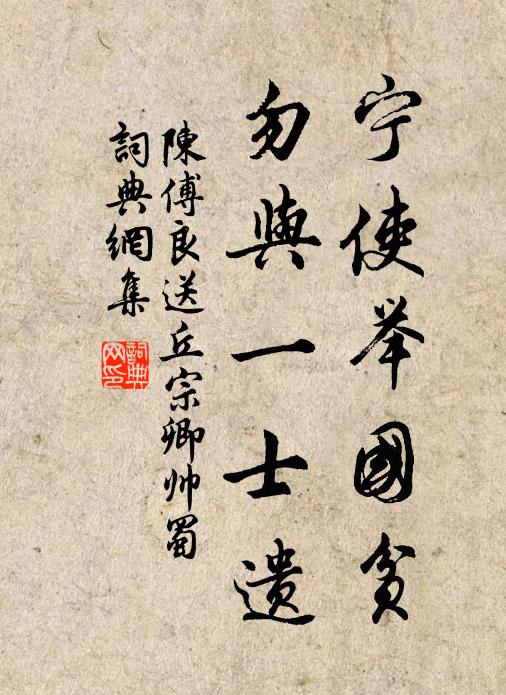 宁使举國貧
勿與一士遺
陳傅良送丘宗卿帅蜀
詞典網集
詞典网印